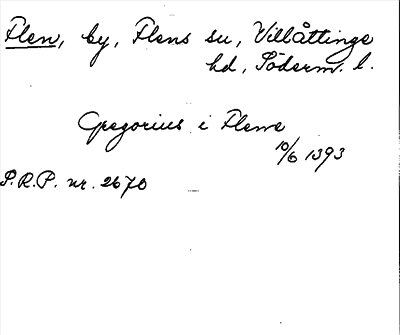 Flen, by, Flens su, Villåttinge
hd, Söderm. l.
Gregorius i Flene
10/6 1393
S.R.P. nr. 2670